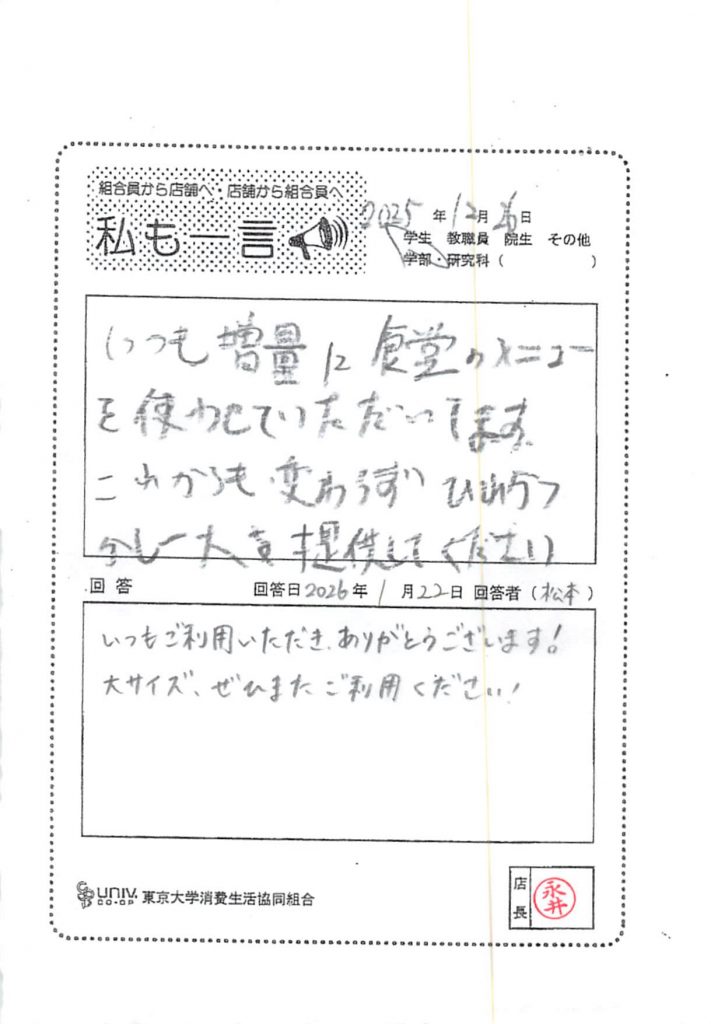 組合員から店舗へ・店舗から組合員へ
私も一言
2025年12月26日
学生 教職員 院生 その他
学部・研究科( )
いつも増量に食堂のメニュー
を使わせていただいてます。
これからも変わらず
カレー大を提供してください
回答 回答日2026年1月22日 回答者(松本)
いつもご利用いただき、ありがとうございます!
大サイズ、ぜひまたご利用ください!
UNIV. CO-OP 東京大学消費生活協同組合
店長 永井